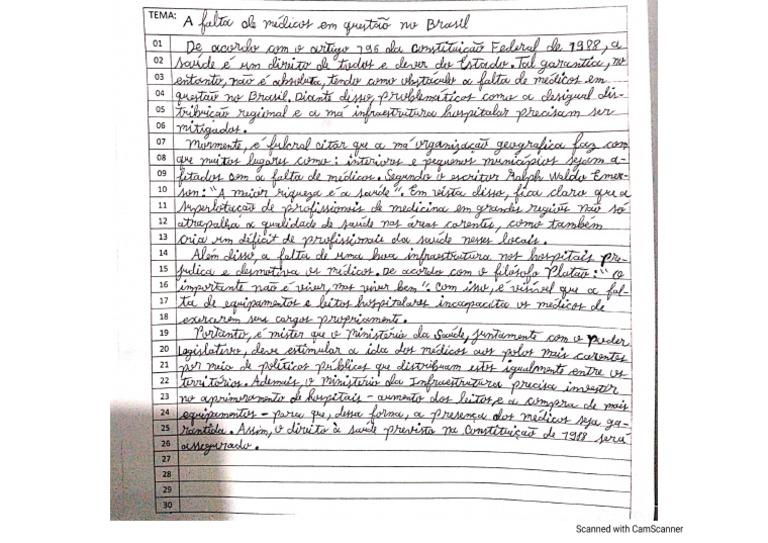 TEMA: A falta de médicos em questão no Brasil
01 De acordo com o artigo 196 da Constituição Federal de 1988, a
02 saúde é um direito de todos e dever do Estado. Tal garantia, no
03 entanto, não é absoluta, tendo como obstáculo a falta de médicos em
04 questão no Brasil. Diante disso, problemáticos como a desigual dis-
05 tribuição regional e a má infraestrutura hospitalar precisam ser
06 mitigados.
07 Mormente, é fulcral citar que a má organização geográfica faz com
08 que muitos lugares como: interiores e pequenos municípios sejam a-
09 fitados com a falta de médicos. Segundo o escritor Ralph Waldo Emer-
10 son: "A maior riqueza é a saúde". Em vista disso, fica claro que a
11 superlotação de profissionais de medicina em grandes regiões não só
12 atrapalha a qualidade de saúde nas áreas carentes, como também
13 cria um déficit de profissionais da saúde nesses locais.
14 Além disso, a falta de uma boa infraestrutura nos hospitais pre-
15 judica e desmotiva os médicos. De acordo com o filósofo Platão: "O
16 importante não é viver, mas viver bem". Com isso, é visível que a fal-
17 ta de equipamentos e leitos hospitalares incapacita os médicos de
18 exercerem seus cargos propriamente.
19 Portanto, é mister que o Ministério da Saúde, juntamente com o poder
20 legislativo, deve estimular a ida dos médicos aos polos mais carentes
21 por meio de políticas públicas que distribuam estes igualmente entre os
22 territórios. Ademais, o Ministério da Infraestrutura precisa investir
23 no aprimoramento de hospitais - aumento dos leitos, e a compra de mais
24 equipamentos - para que, dessa forma, a presença dos médicos seja ga-
25 rantida. Assim, o direito à saúde previsto na Constituição de 1988 será
26 assegurado.
27
28
29
30
Scanned with CamScanner